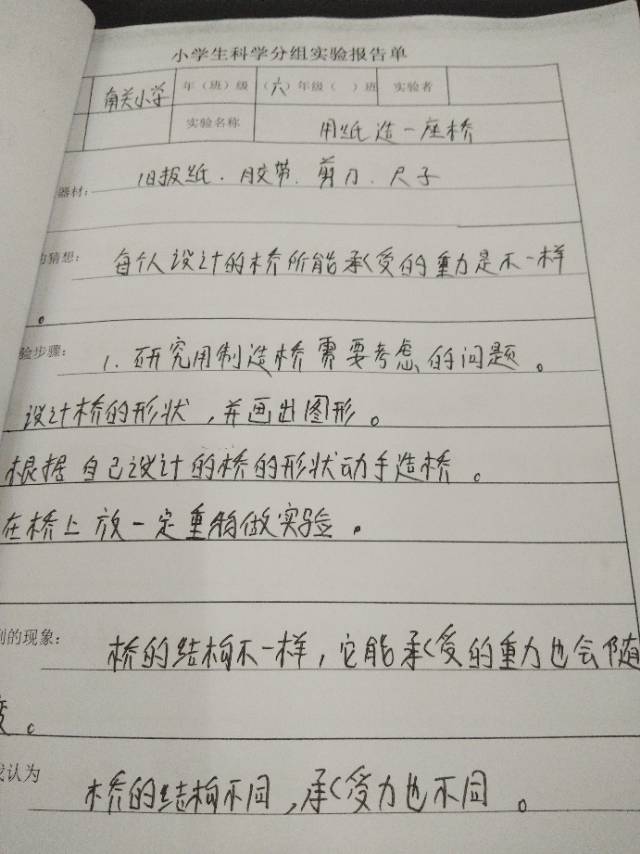 小学生科学分组实验报告单
南关小学 年（班）级 （六）年级（ ）班 实验者
实验名称 用纸造一座桥
器材： 旧报纸．胶带．剪刀．尺子
的猜想： 每个人设计的桥所能承受的重力是不一样
。
验步骤： 1．研究用制造桥需要考虑的问题。
设计桥的形状，并画出图形。
根据自己设计的桥的形状动手造桥。
在桥上放一定重物做实验。
到的现象： 桥的结构不一样，它能承受的重力也会随
变。
我认为 桥的结构不同，承受力也不同。